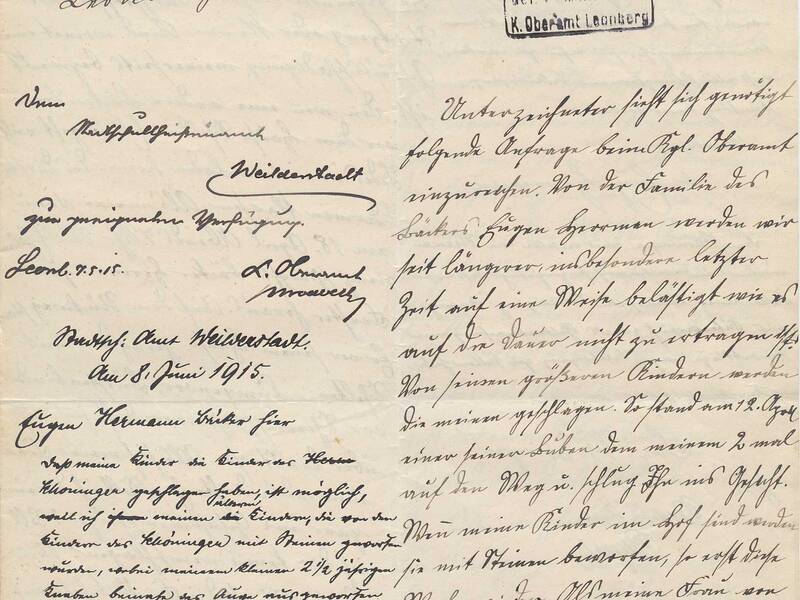 K. Oberamt Leonberg
Dem
Stadtschultheissenamt
Weilderstadt
zur geeigneten Verfügung.
Leonb. 7.5.15.
K. Oberamt
Stadtsch: Amt Weilderstadt.
Am 8. Juni 1915.
Eugen Hermann Bäcker hier
Daß meine Kinder die Kinder des
Schöninger geschlagen haben, ist möglich,
weil ich meinen ältern Kindern, die von den
Kindern des Schöninger mit Steinen geworfen
wurden, wobei meinem kleinen 2 1/2 jährigen
Knaben beinahe das Auge ausgeworfen
Unterzeichneter sieht sich genötigt
folgende Anfrage beim Kgl. Oberamt
einzureichen. Von der Familie des
Bäckers Eugen Herrmen werden wir
seit längerer, insbesondere letzter
Zeit auf eine Weise belästigt wie es
auf die Dauer nicht zu ertragen ist.
Von seinen größeren Kindern werden
die meinen geschlagen. So stand am 12. April
einer seiner Buben dem meinem 2 mal
auf den Weg u. schlug Ihn ins Gesicht.
Wen meine Kinder im Hof sind werden
sie mit Steinen beworfen, so erst diese
Als meine Frau von